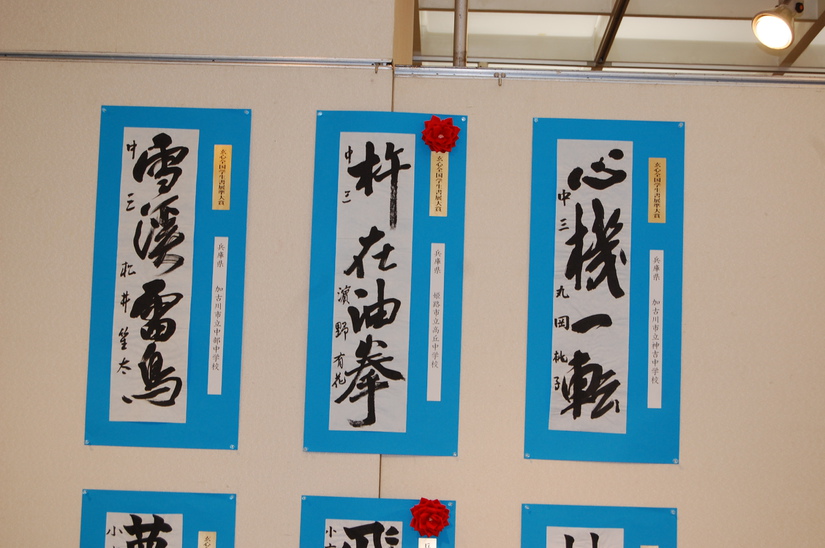 玄心全国学生書展準大賞
兵庫県 加古川市立中部中学校
雪溪雷鳥
中三 松井笙太
玄心全国学生書展大賞
兵庫県 姫路市立高丘中学校
杵在油拳
中三 濱野有花
玄心全国学生書展準大賞
兵庫県 加古川市立神吉中学校
心機一転
中三 丸岡桃子
玄心
小
兵
飛
小